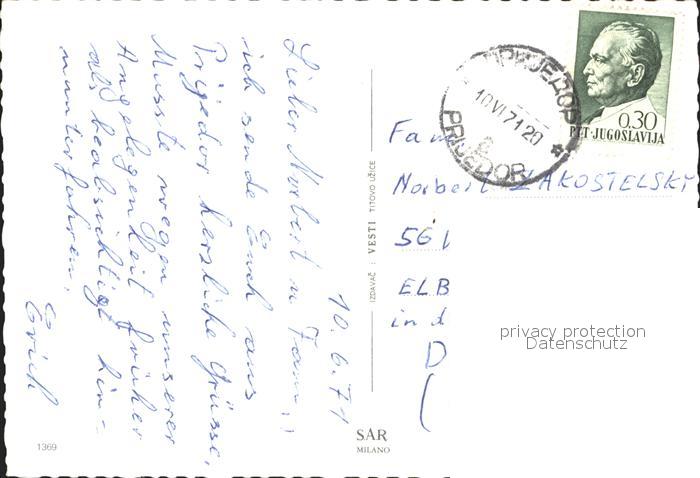 10.6.71
Lieber Norbert u Fam.,
ich sende Euch aus
Prijedor herzliche Grüsse,
Musste wegen unserer
Angelegenheit früher
als beabsichtigt hin-
unterfahren.
Erich
1369
IZDAVAČ: VESTI TITOVO UŽICE
SAR
MILANO
ПРИЈЕДОР
10 VI 71 20
2
PRIJEDOR
0.30
PTT · JUGOSLAVIJA
Fam
Norbert ZAKOSTELSKY
561
ELB
in d
D
(
privacy protection
Datenschutz